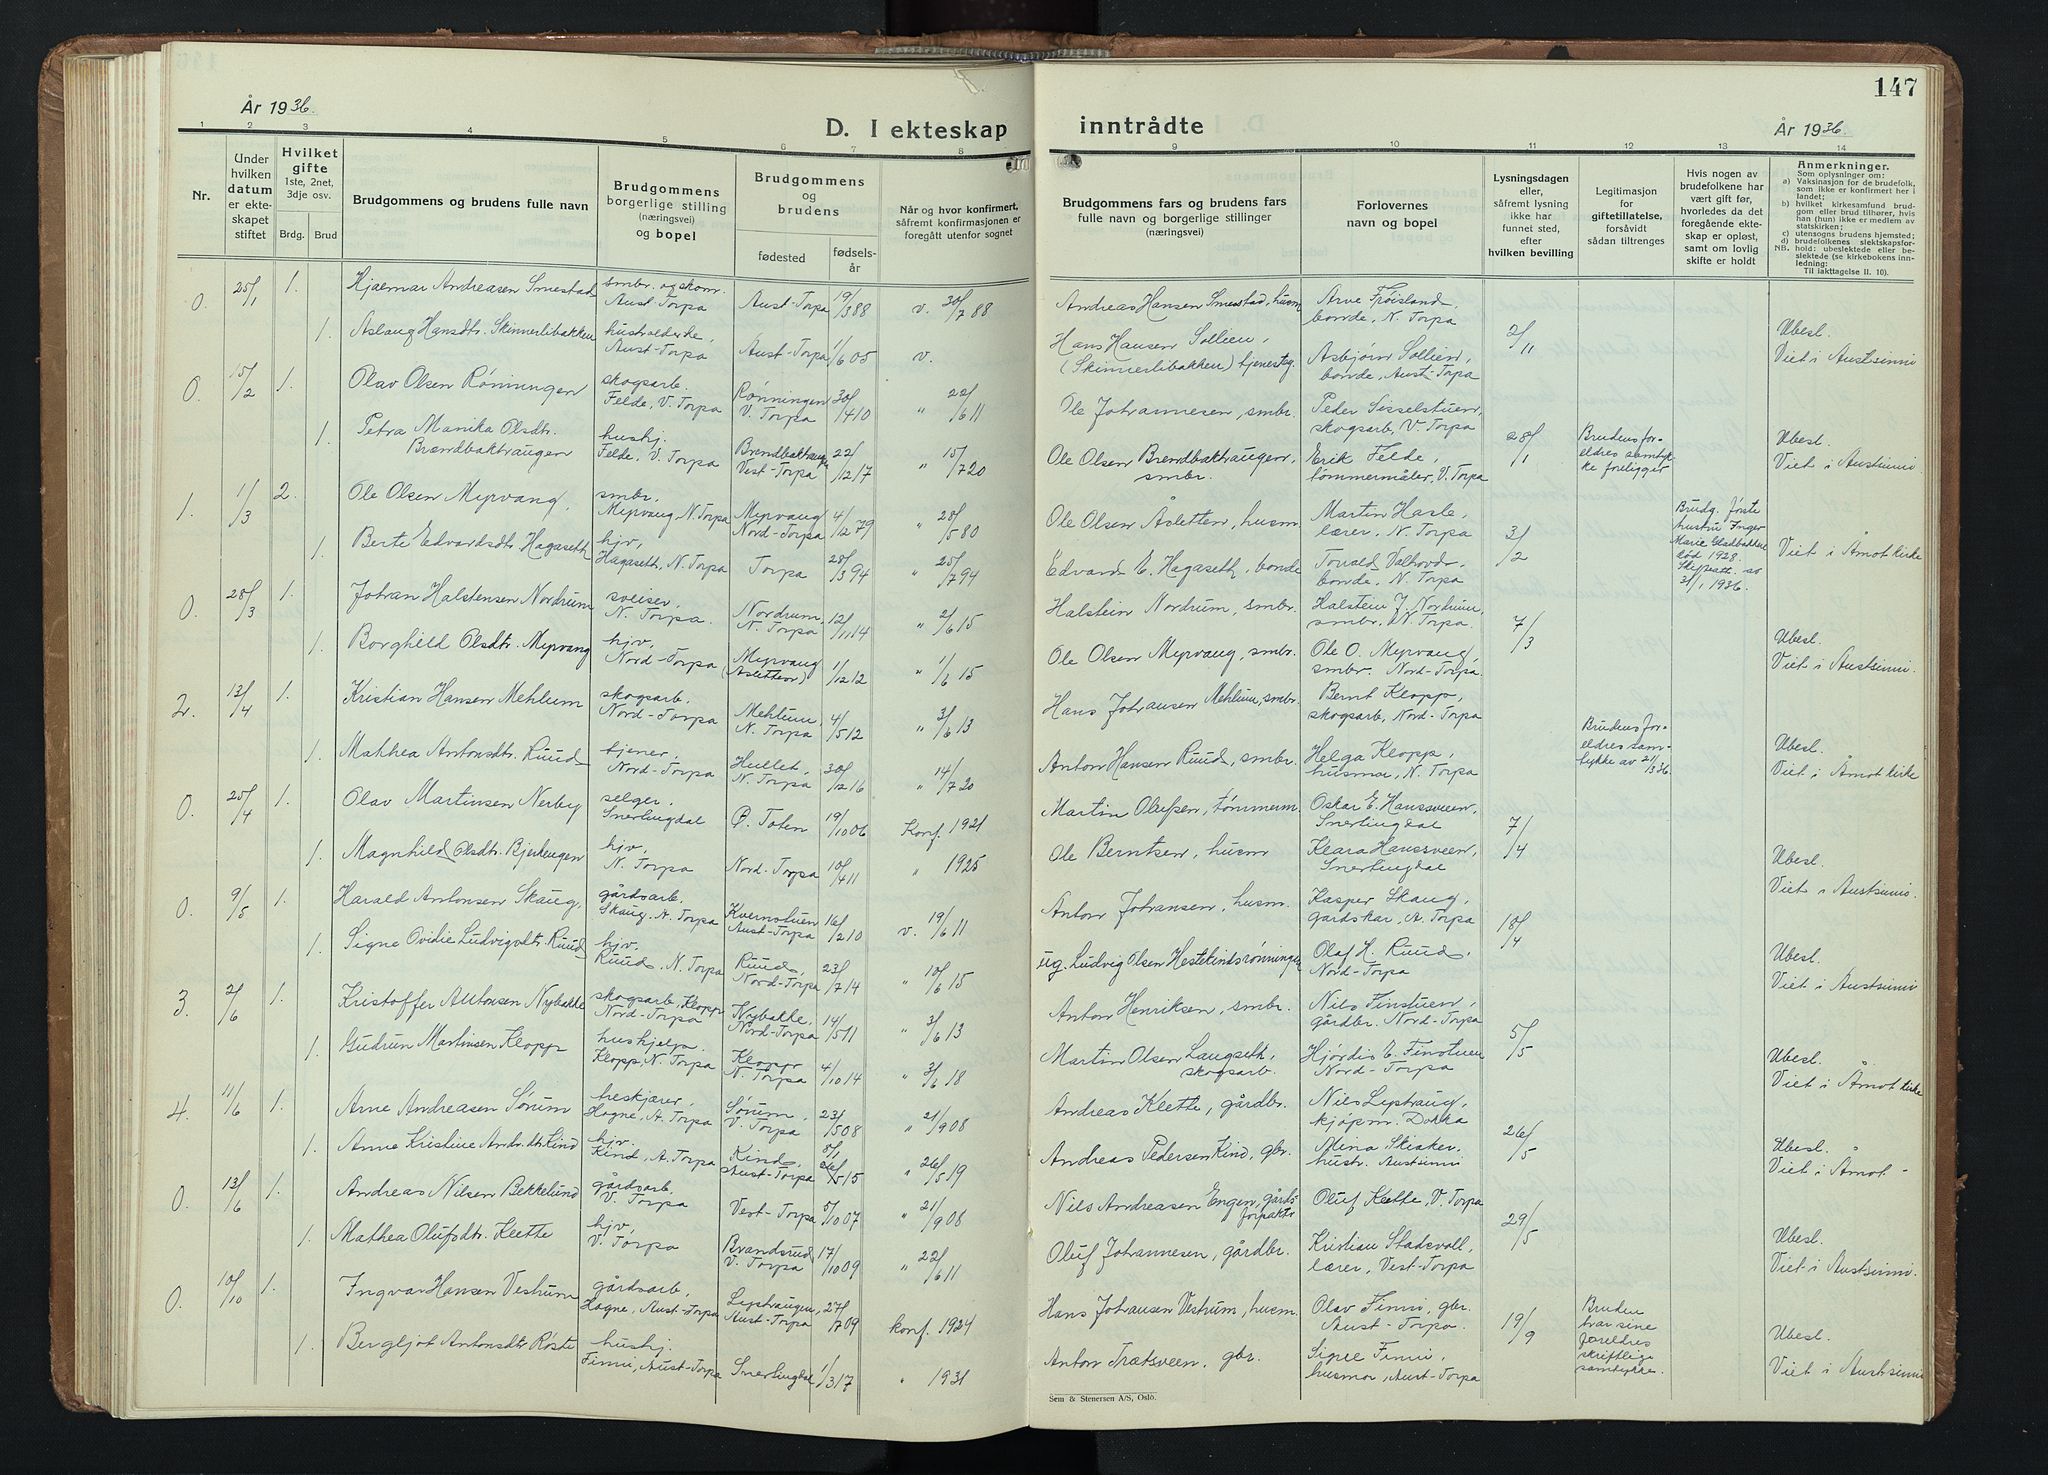 147
År 1936.
D. I ekteskap inntrådte
År 1936.
1 2 3 4 5 6 7 8 9 10 11 12 13 14
Nr.
Under hvilken datum er ekteskapet stiftet
Hvilket gifte 1ste, 2net, 3dje osv.
Brdg. Brud
Brudgommens og brudens fulle navn
Brudgommens borgerlige stilling (næringsvei) og bopel
Brudgommens og brudens
fødested
fødselsår
Når og hvor konfirmert, såfremt konfirmasjonen er foregått utenfor sognet
Brudgommens fars og brudens fars fulle navn og borgerlige stillinger (næringsvei)
Forlovernes navn og bopel
Lysningsdagen eller, såfremt lysning ikke har funnet sted, efter hvilken bevilling
Legitimasjon for giftetillatelse, forsåvidt sådan tiltrenges
Hvis nogen av brudefolkene har vært gift før, hvorledes da det foregående ekteskap er opløst, samt om lovlig skifte er holdt
Anmerkninger.
Som oplysninger om:
a) Vaksinasjon for de brudefolk, som ikke er konfirmert her i landet;
b) hvilket kirkesamfund brudgom eller brud tilhører, hvis han (hun) ikke er medlem av statskirken;
c) utensogns brudens hjemsted;
d) brudefolkenes slektskapsforhold: ubeslektede eller beslektede (se kirkebokens innledning:
NB.
Til iakttagelse II. 10).
0. 25/1 1. Hjalmar Andreasen Smestad smbr. og skom. Aust Torpa Aust-Torpa 19/3 88 v. 30/7 88 Andreas Hansen Smestad, husm Arne Frøisland bonde, N. Torpa
1. Aslaug Hansdtr. Skinnerlibakken husholderske, Aust-Torpa Aust-Torpa 1/6 05 v. Hans Hansen Sollien, (Skinnerlibakken) tjenestg. Asbjørn Sollien, bonde, Aust-Torpa 2/11 Ubesl. Viet i Austsinni
0. 15/2 1. Olav Olsen Rønningen skogsarb. Felde, V. Torpa Rønningen V. Torpa 30/4 10 " 22/6 11 Ole Johannesen, smbr. Peder Sisselstuen, skogsarb, V. Torpa
1. Petra Marika Olsdtr. Brændbakhaugen hushj. Felde, V. Torpa Brendbakhaugen Vest-Torpa 22/12 17 " 15/7 20 Ole Olsen Brendbakhaugen, smbr. Erik Felde, tømmermåler, V. Torpa 28/1 Brudens foreldres samtykke foreligger Ubesl. Viet i Austsinni
1. 1/3 2. Ole Olsen Myrvang, smbr. Myrvang, N. Torpa Myrvang Nord-Torpa 4/12 79 " 28/5 80 Ole Olsen Asletten, husm. Martin Hasle, lærer, N. Torpa Brudg. første hustru Inger Marie Gladbakken død 1928. Skifteatt. av 31/1 1936.
1. Berte Edvardsdtr. Hagaseth hjv, Hagaseth, N. Torpa Torpa 28/3 94 " 25/7 94 Edvard E. Hagaseth, bonde Torvald Valhovd, bonde, N. Torpa 3/2 Viet i Åmot kirke
0. 28/3 1. Johan Halstensen Nordrum sveiser, N. Torpa. Nordrum, N. Torpa 12/11 14 " 2/6 15 Halstein Nordrum, smbr. Halstein J. Nordrum, smbr. N. Torpa.
1. Borghild Olsdtr. Myrvang hjv, Nord-Torpa Myrvang (Asletten) 1/12 12 " 1/6 15 Ole Olsen Myrvang, smbr. Ole O. Myrvang, smbr. Nord-Torpa. 7/3 Ubesl. Viet i Austsinni.
2. 13/4 1. Kristian Hansen Mehlum skogsarb. Nord-Torpa Mehlum, N. Torpa 4/5 12 " 3/6 13 Hans Johansen Mehlum, smbr. Bernt Klopp, skogsarb, Nord-Torpa
1. Mathea Antonsdtr. Ruud tjener, Nord-Torpa Hullet, N. Torpa 30/12 16 " 14/7 20 Anton Hansen Ruud, smbr. Helga Klopp, husmor, N. Torpa Brudens foreldres samtykke av 21/3 36. Ubesl. Viet i Åmot kirke
0. 25/4 1. Olav Martinsen Nerby selger. Snertingdal Ø. Toten 19/10 06 Konf. 1921 Martin Olufsen, tømmerm. Oskar E. Hansveen, Snertingdal
1. Magnhild Olsdtr. Bjerkengen hjv, N. Torpa Nord-Torpa 10/4 11 " 1925 Ole Berntsen, husm Klara Hansveen, Snertingdal 7/4 Ubesl. Viet i Austsinni.
0. 9/5 1. Harald Antonsen Skaug, gårdsarb. Skaug, A. Torpa Kvernstuen Aust-Torpa 16/2 10 v. 19/6 11 Anton Johansen, husm. Kasper Skaug, gårdskar, A. Torpa
1. Signe Ovidie Ludvigsdtr. Ruud hjv. Ruud, N. Torpa Ruud, Nord-Torpa 23/7 14 " 10/6 15 ug. Ludvig Olsen Hestekindsrønningen Olaf H. Ruud, Nord-Torpa 18/4 Ubesl. Viet i Austsinni
3. 2/6 1. Kristoffer Antonsen Nybakke skogsarb. Klopp Nord-Torpa Nybakke, Nord-Torpa 14/5 11 " 3/6 13 Anton Henriksen, smbr. Nils Finstuen, gårdbr. Nord-Torpa
1. Gudrun Martinsen Klopp hushjelp. Klopp, N. Torpa Klopp N. Torpa 4/10 14 " 3/6 18 Martin Olsen Langseth, skogsarb. Hjørdis E. Finstuen Nord-Torpa 5/5 Ubesl. Viet i Åmot kirke
4. 11/6 1. Arne Andreasen Sørum heskjører, Hogne, A. Torpa Sørum, V. Torpa 23/5 08 " 21/9 08 Andreas Klette, gårdbr. Nils Lyshaug, kjøpm. Dokka
1. Anne Kristine Andr.dtr. Kind hjv. Kind, A. Torpa Kind, Aust-Torpa 26/5 15 " 26/5 19 Andreas Pedersen Kind, gbr. Mina Skiaker, hustr. Austsinni 26/5 Ubesl. Viet i Åmot -
0. 13/6 1. Andreas Nilsen Bekkelund gårdsarb. V. Torpa Vest-Torpa 5/10 07 " 21/9 08 Nils Andreasen Engen, gårdsforpakter Oluf Klette, V. Torpa
1. Mathea Olufsdtr. Klette hjv, V. Torpa Brandsrud V. Torpa 17/10 09 " 22/6 11 Oluf Johannesen, gårdbr. Kristian Stadsvoll, lærer, Vest-Torpa 29/5 Ubesl. Viet i Austsinni.
0. 10/10 1. Ingvar Hansen Vestrum gårdsarb, Hogne, Aust-Torpa Lyshaugen, Aust-Torpa 27/7 09 konf. 1924 Hans Johansen Vestrum, husm. Olav Finni, gbr. Aust-Torpa.
1. Bergljot Antonsdtr. Røste hushj. Finni, Aust-Torpa Snertingdal 1/3 17 " 1931 Anton Trætsveen, gbr. Signe Finni, husmor, Aust-Torpa 19/9 Bruden har sine foreldres skriftlige samtykke. Ubesl. Viet i Austsinni
Sem & Stenersen A/S, Oslo.